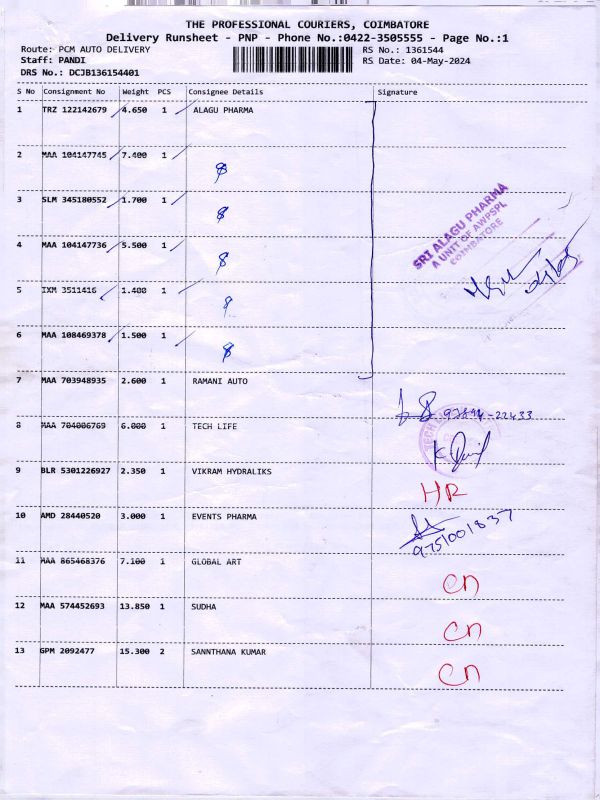 THE PROFESSIONAL COURIERS, COIMBATORE
Delivery Runsheet - PNP - Phone No.:0422-3505555 - Page No.:1
Route: PCM AUTO DELIVERY RS No.: 1361544
Staff: PANDI RS Date: 04-May-2024
DRS No.: DCJB136154401
S No Consignment No Weight PCS Consignee Details Signature
1 TRZ 122142679 4.650 1 ALAGU PHARMA
2 MAA 104147745 7.400 1
3 SLM 345180552 1.700 1
SRI ALAGU PHARMA
A UNIT OF AWPSPL
COIMBATORE
4 MAA 104147736 5.500 1
5 IXM 3511416 1.400 1
6 MAA 108469378 1.500 1
7 MAA 703948935 2.600 1 RAMANI AUTO
97894-22433
8 MAA 704006769 6.000 1 TECH LIFE
9 BLR 5301226927 2.350 1 VIKRAM HYDRALIKS
HR
10 AMD 28440520 3.000 1 EVENTS PHARMA
9751001837
11 MAA 865468376 7.100 1 GLOBAL ART
CN
12 MAA 574452693 13.850 1 SUDHA
CN
13 GPM 2092477 15.300 2 SANNTHANA KUMAR
CN